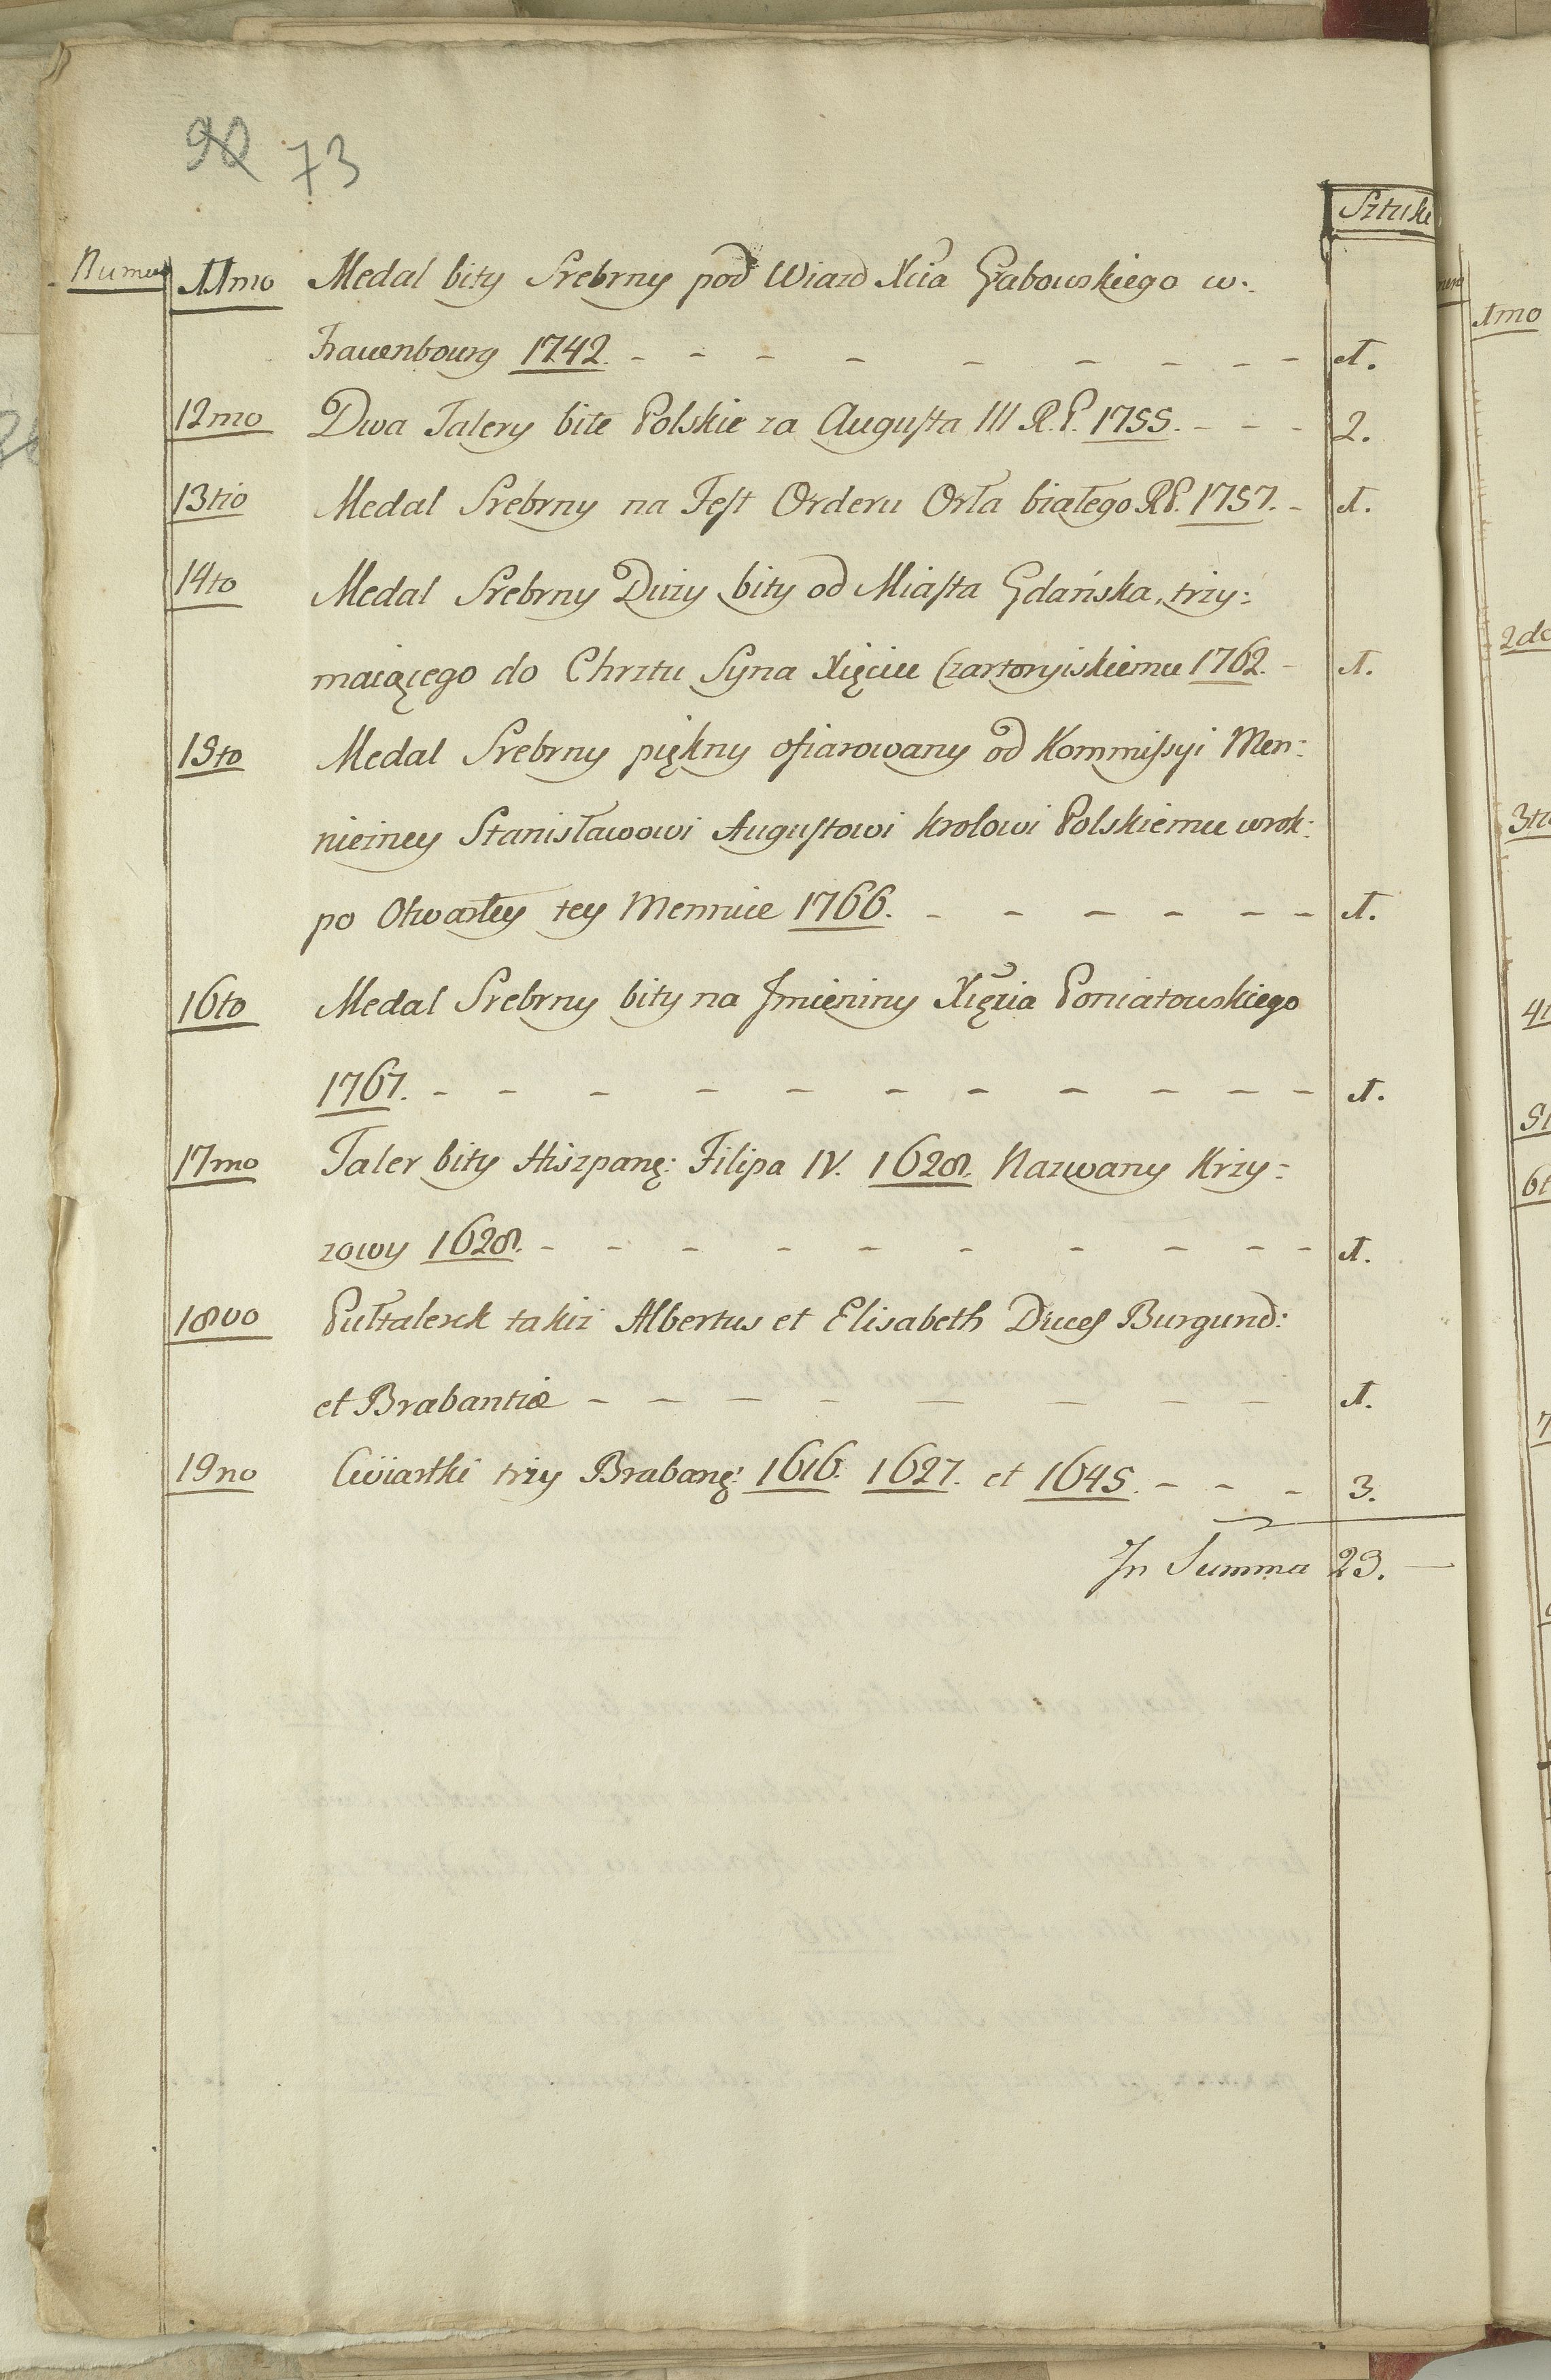 90 73
Sztuki
Numero 11mo Medal bity Srebrny pod Wiazd Xcia Grabowskiego w.
Frauenbourg 1742. - - - - - - - - - 1.
12mo Dwa Talery bite Polskie za Augusta III R.P. 1755. - - - 2.
13tio Medal Srebrny na Fest Orderu Orła białego R.P. 1757. - 1.
14to Medal Srebrny Duzy bity od Miasta Gdańska, trzy:
maiącego do Chrztu Syna Xięciu Czartoryiskiemu 1762. - 1.
15to Medal Srebrny piękny ofiarowany od Kommissyi Men:
niczney Stanisławowi Augustowi Krolowi Polskiemu wrok:
po Otwartey tey Mennice 1766. - - - - - - 1.
16to Medal Srebrny bity na Jmieniny Xięcia Poniatowskiego
1767. - - - - - - - - - - - 1.
17mo Taler bity Hiszpang: Filipa IV. 1628. Nazwany Krzy:
zowy 1628. - - - - - - - - - - 1.
18vo Pułtalerek takiz Albertus et Elisabeth Duces Burgund:
et Brabantiæ - - - - - - - - 1.
19no Cwiartki trzy Brabang: 1616. 1627. et 1645. - - - 3.
In Summa 23. —
1mo
2do
3tio